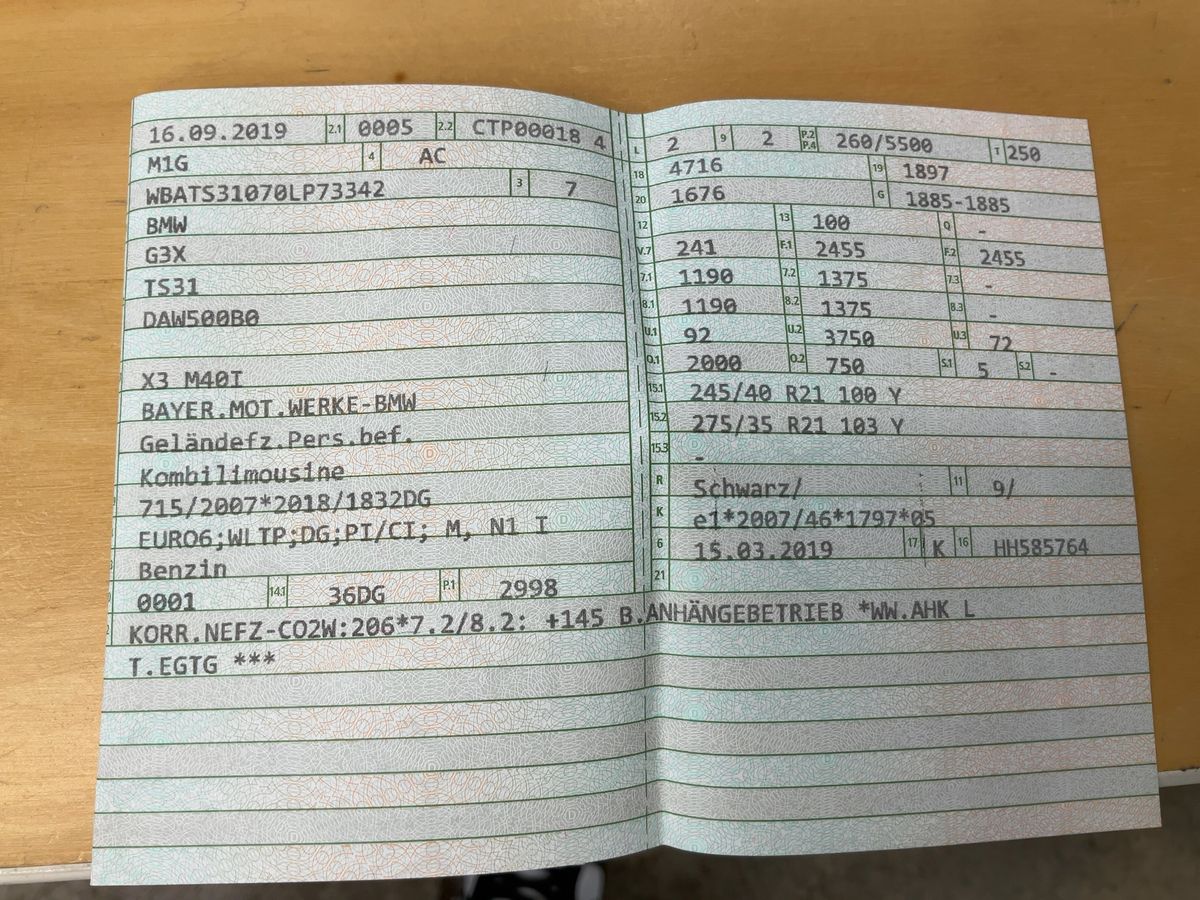 16.09.2019 2.1 0005 2.2 CTP00018 4
M1G 4 AC
WBATS31070LP73342 3 7
BMW
G3X
TS31
DAW500B0
X3 M40I
BAYER.MOT.WERKE-BMW
Geländefz.Pers.bef.
Kombilimousine
715/2007*2018/1832DG
EURO6;WLTP;DG;PI/CI; M, N1 I
Benzin
0001 14.1 36DG P.1 2998
L 2 9 2 P.2 P.4 260/5500 T 250
18 4716 19 1897
20 1676 G 1885-1885
12 13 100 Q -
V.7 241 F.1 2455 F.2 2455
7.1 1190 7.2 1375 7.3 -
8.1 1190 8.2 1375 8.3 -
U.1 92 U.2 3750 U.3 72
O.1 2000 O.2 750 S.1 5 S.2 -
15.1 245/40 R21 100 Y
15.2 275/35 R21 103 Y
15.3 -
R Schwarz/ 11 9/
K e1*2007/46*1797*05
6 15.03.2019 17 K 16 HH585764
21
KORR.NEFZ-CO2W:206*7.2/8.2: +145 B.ANHÄNGEBETRIEB *WW.AHK L
T.EGTG ***